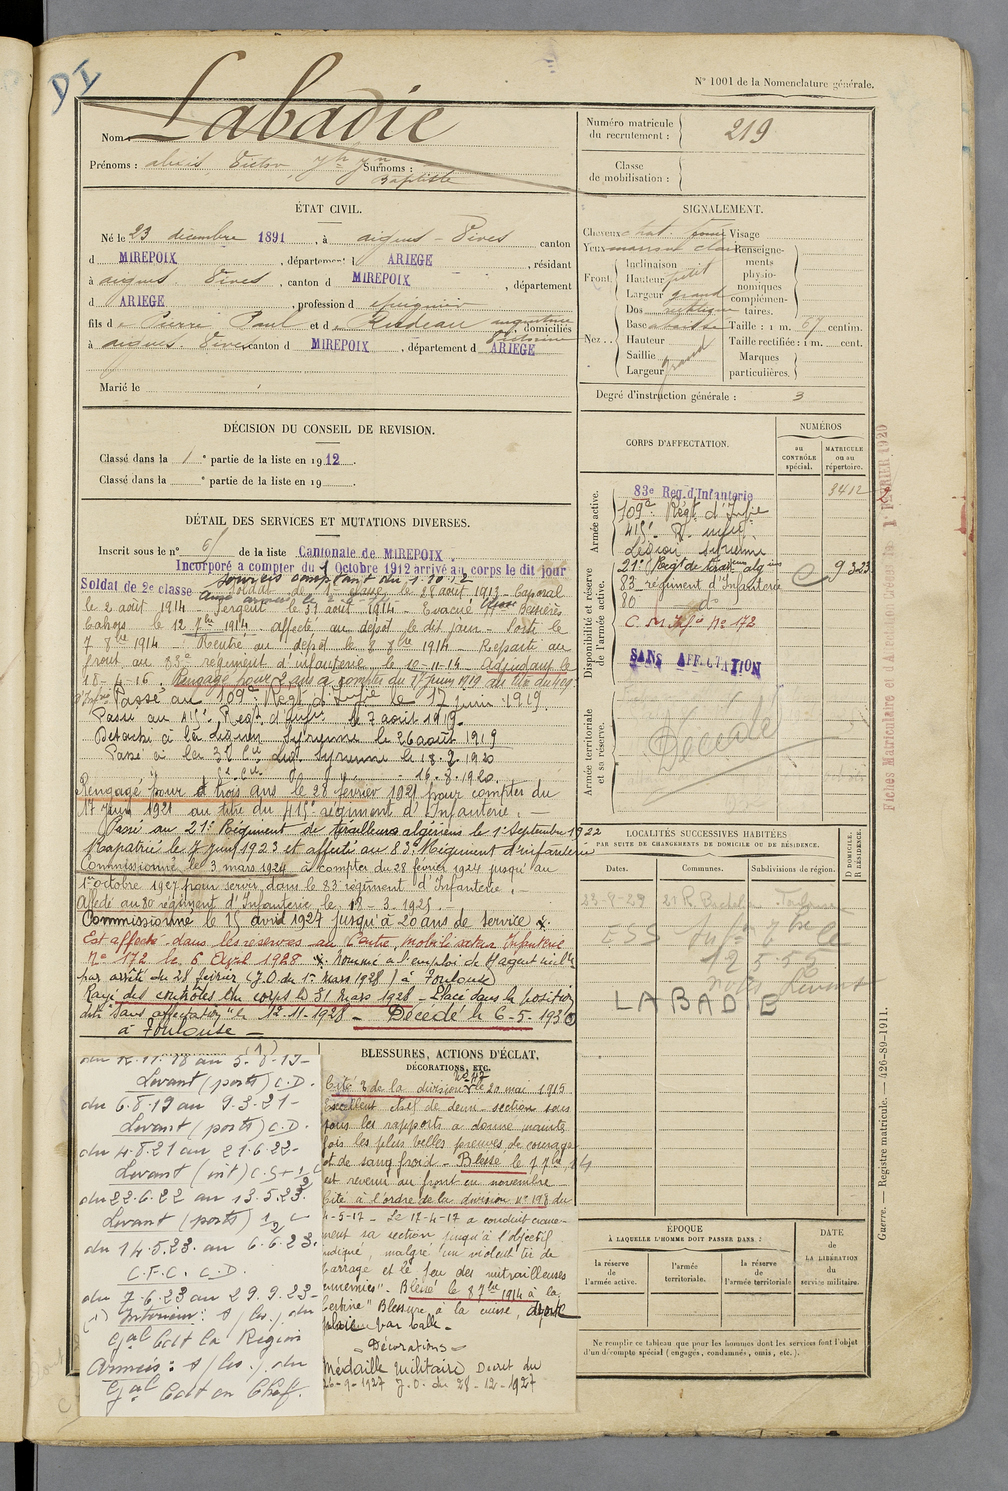 DI
N° 1001 de la Nomenclature générale.
Nom : Labadie
Prénoms : Victor Surnoms :
Baptiste
Numéro matricule
du recrutement : 219
Classe
de mobilisation :
ÉTAT CIVIL.
Né le 23 décembre 1891, à aigues-Vives canton
d MIREPOIX, département d ARIEGE, résidant
à aigues Vives, canton d MIREPOIX, département
d ARIEGE, profession d
fils de Pierre Paul et de Rudeau domiciliés
à aigues-Vives canton d MIREPOIX, département d ARIEGE
Marié le
SIGNALEMENT.
Cheveux chat. foncé Visage
Yeux marron clair
Front Inclinaison
Hauteur petit
Largeur grand
Dos rectiligne
Base abaissée
Nez Hauteur
Saillie
Largeur grand
Renseignements physionomiques complémentaires.
Taille : 1 m. 67 centim.
Taille rectifiée : 1 m. cent.
Marques
particulières.
Degré d'instruction générale : 3
DÉCISION DU CONSEIL DE REVISION.
Classé dans la 1e partie de la liste en 1912.
Classé dans la e partie de la liste en 19
DÉTAIL DES SERVICES ET MUTATIONS DIVERSES.
Inscrit sous le n° 61 de la liste Cantonale de MIREPOIX
Incorporé a compter du 1 Octobre 1912 arrivé au corps le dit jour
services comptant du 1.10.12
Soldat de 2e classe
Soldat de 1e classe le 28 août 1913 - Caporal
le 2 août 1914 - Sergent le 31 août 1914 - Evacué Bessières
Cahors le 12 7bre 1914 affecté au dépôt le dit jour - Parti le
7 8bre 1914 - Rentré au dépôt le 8 8bre 1914 - Reparti au
front au 83e régiment d'infanterie le 10-11-14 Adjudant le
18-4-16. Rengagé pour 2 ans à compter du 17 juin 1919 au titre du 109
d'Infrie Passé au 109e Régt d'Infie le 17 juin 1919.
Passé au 415e Regt d'Infie le 7 août 1919.
Détaché à la Légion Syrienne le 26 août 1919
Passé à la Cie Lég. Syrienne le 18.9.1920
16.8.1920.
Rengagé pour trois ans le 28 février 1921 pour compter du
17 juin 1921 au titre du 415e régiment d'Infanterie :
Passé au 21e Régiment de tirailleurs algériens le 1er Septembre 1922
Rapatrié le 7 Juin 1923 et affecté au 83e Régiment d'infanterie
Commissionné le 3 mars 1924 à compter du 28 février 1924 jusqu'au
1er octobre 1927 pour servir dans le 83e régiment d'Infanterie :
Affecté au 80 régiment d'Infanterie le 18-3-1925.
Commissionné le 15 avril 1927 jusqu'à 20 ans de service.
Est affecté dans les réserves au Centre mobilisateur Infanterie
N° 172 le 6 Avril 1928 Nommé à l'emploi de
par arrêté du 28 février (J.O du 1er Mars 1928) à Toulouse
Rayé des contrôles du corps le 31 Mars 1928 - Placé dans la position
dite "Sans affectation" le 12-11-1928 - Décédé le 6-5-1930
à Toulouse -
CORPS D'AFFECTATION.
NUMÉROS
au CONTRÔLE spécial.
MATRICULE ou au répertoire.
Armée active.
83e Reg. d'Infanterie 3412
109e Régt d'Infie
415e R. infie
Légion Syrienne
Disponibilité et réserve de l'armée active.
21e Regt de tirailleurs algiens 9323
83 régiment d'Infanterie
80 do
C. M. Infie N° 172
SANS AFFECTATION
Armée territoriale et sa réserve.
Décédé
LOCALITÉS SUCCESSIVES HABITÉES
PAR SUITE DE CHANGEMENTS DE DOMICILE OU DE RÉSIDENCE.
Dates. Communes. Subdivisions de région.
D DOMICILE.
R RÉSIDENCE.
23-8-29 Toulouse
ESS
LABADIE
Fiches Matriculaire et
1 FÉVRIER 1920
Guerre. — Registre matricule. — 426-89-1911.
du 12.11.18 au 5.8.19 -
Levant (ports) C.D.
du 6.8.19 au 9.3.21 -
Levant (ports) C.D.
du 4.8.21 au 21.6.22 -
Levant (int) C.S +
du 22.6.22 au 13.5.23.
Levant (ports)
du 14.5.23. au 6.6.23.
C.F.C. C.D.
du 7.6.23 au 29.9.23 -
(1) Intérieur: du
Gal Cdt la Région
Armées: du
Gal Cdt en Chef.
BLESSURES, ACTIONS D'ÉCLAT,
DÉCORATIONS, ETC.
Cité à de la division le 20 mai 1915
Excellent chef de demi-section sous
tous les rapports a donné maintes
fois les plus belles preuves de courage
et de sang froid - Blessé le 7 7bre 14
est revenu au front en novembre -
Cité à l'ordre de la division n° 198 du
4-5-17 - Le 17-4-17 a conduit crâne-
ment sa section jusqu'à l'objectif
indiqué, malgré un violent tir de
barrage et le feu des mitrailleuses
ennemies". Blessé le 8 7bre 1914 à
Blessure à la cuisse,
par balle -
Décorations
Médaille Militaire Décret du
J.O. du 28-12-1927
ÉPOQUE
À LAQUELLE L'HOMME DOIT PASSER DANS :
la réserve de l'armée active.
l'armée territoriale.
la réserve de l'armée territoriale
DATE de LA LIBÉRATION du service militaire.
Ne remplir ce tableau que pour les hommes dont les services font l'objet
d'un décompte spécial (engagés, condamnés, omis, etc.).